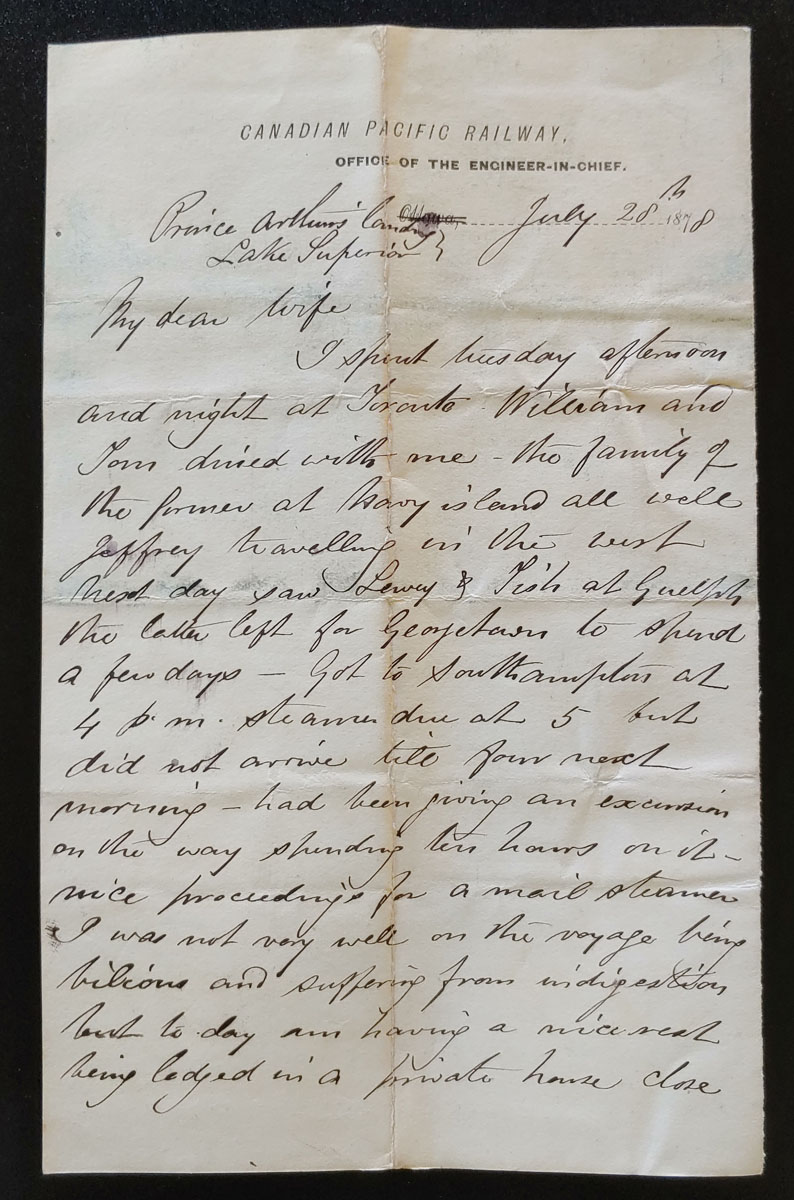 CANADIAN PACIFIC RAILWAY,
OFFICE OF THE ENGINEER-IN-CHIEF.
Prince Arthurs' landing Ottawa, July 28th 1878
Lake Superior
My dear Wife
I spent tuesday afternoon
and night at Toronto. William and
Tom dined with me - the family of
the former at Navy island all well
Jeffrey travelling in the west
next day saw Lewey & Tish at Guelph
the latter left for Georgetown to spend
a few days - Got to Southampton at
4 p.m. steamer due at 5 but
did not arrive till four next
morning - had been giving an excursion
on the way spending ten hours on it -
nice proceedings for a mail steamer
I was not very well on the voyage being
bilious and suffering from indigestion
but to day am having a nice rest
being lodged in a private house close